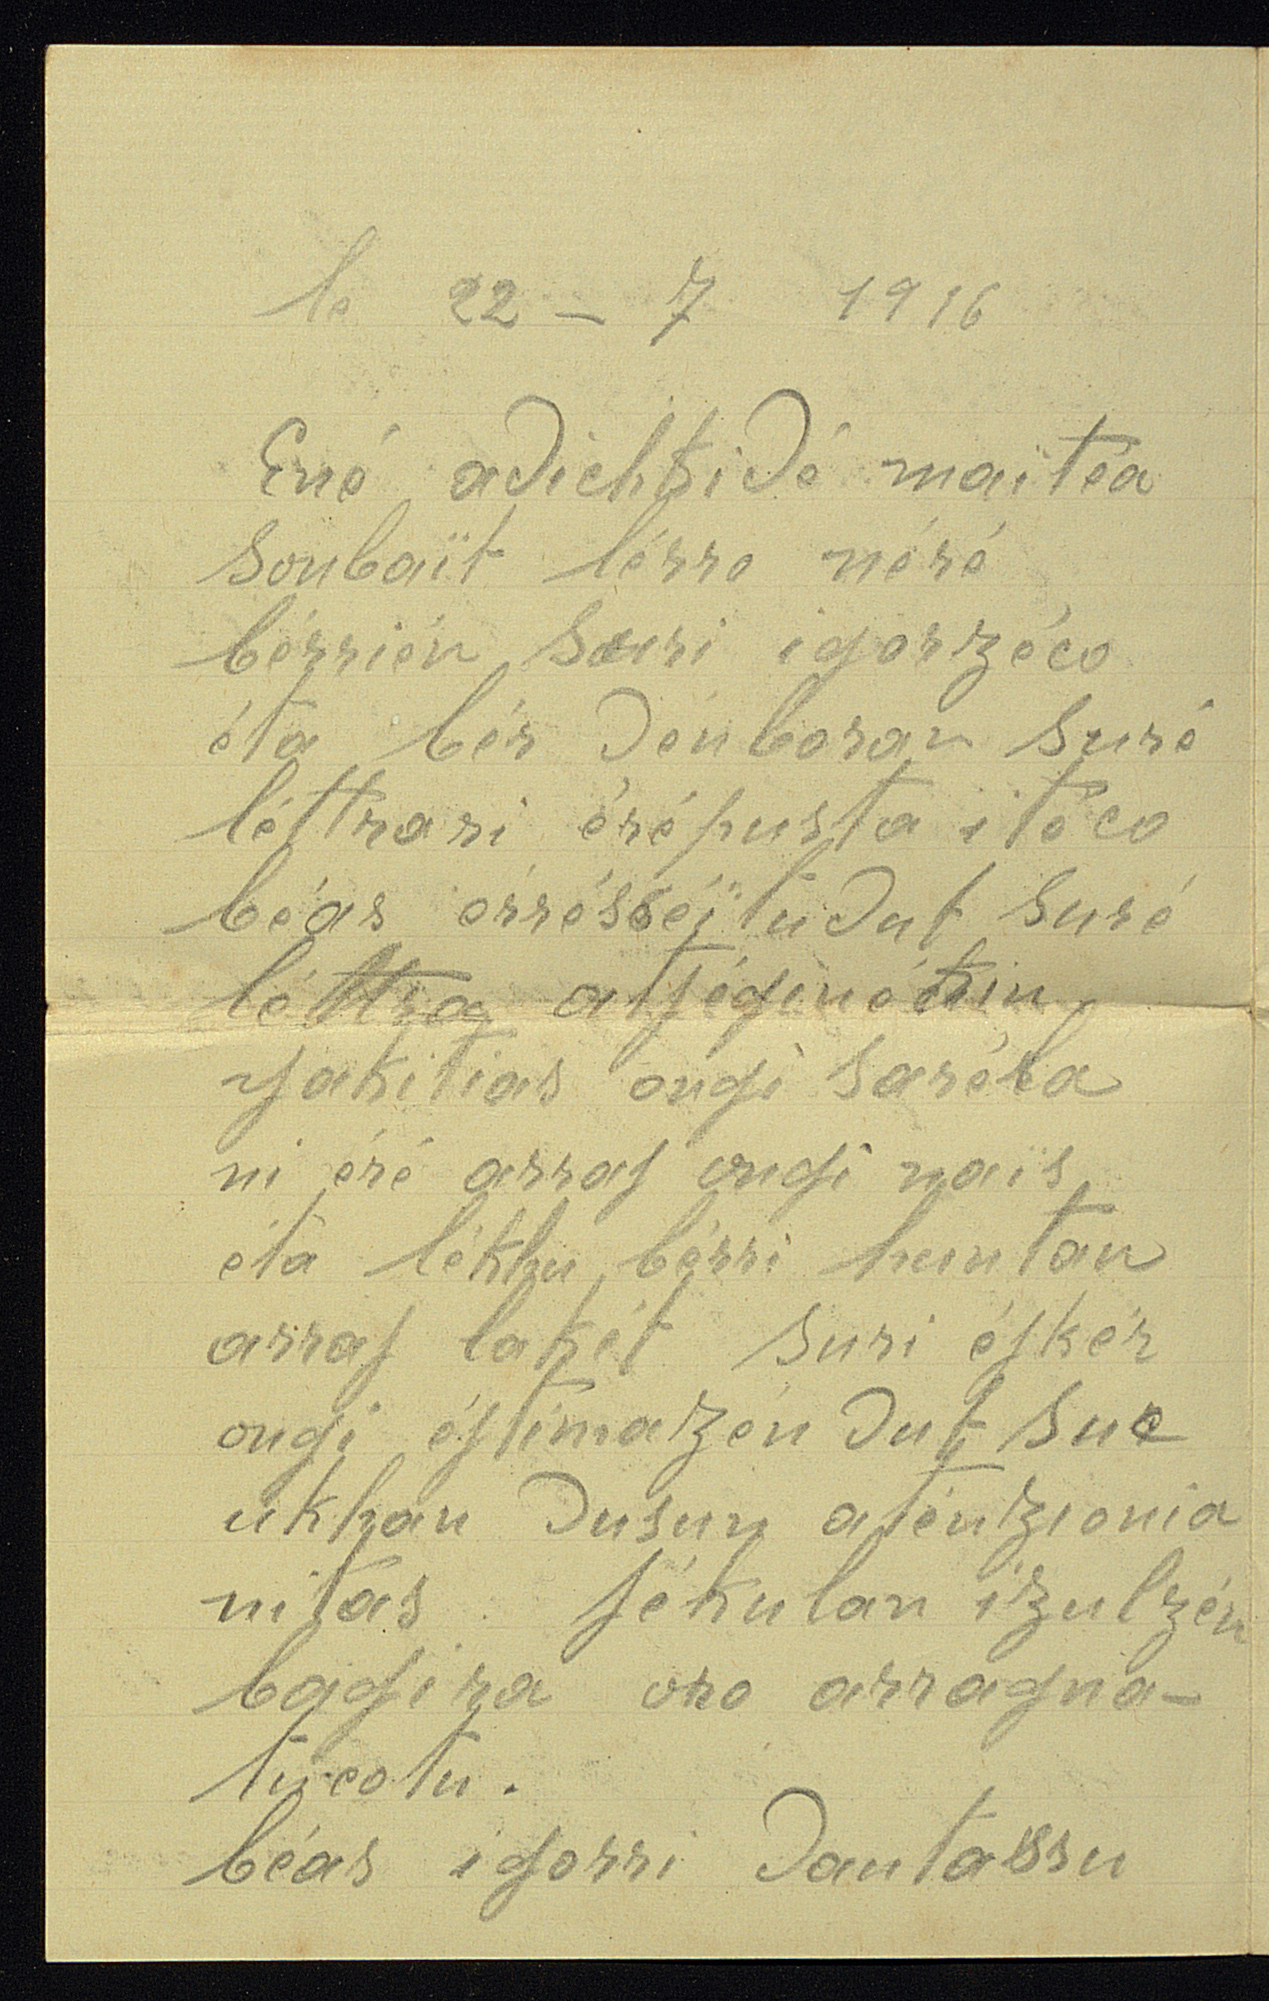 le 22 – 7 1916
Ené adichkidé maitea
Soubaït lérro néré
bérrién Suri igortzéco
éta bér dénboran Suré
léttrari érépusta itéco
béas érrésséïtu dut Suré
léttra atséginékin
yakitias ongi Saréla
ni éré arras ongi naïs
éta lékhu bérri huntan
arras lakét Suri éskér
ongi éstimatzén dut Suc
ukhan dusun aténtzionia
nitas. sékulan itzultzén
bagira oro arragna-
tucotu.
béas igorri dautassu